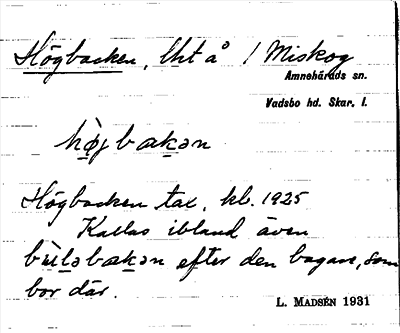 Högbacken, lht å / Miskog
Amnehärads sn.
Vadsbo hd. Skar. l.
hö̀jbakən
Högbacken tax. kb. 1925
Kallas ibland även
bùləbakən efter den bagare, som
bor där.
L. MADSÉN 1931